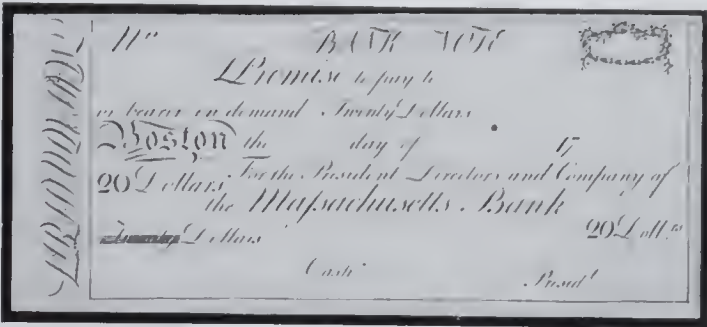 No BANK NOTE
I Promise to pay to
or bearer on demand Twenty Dollars
Boston the day of 17
20 Dollars For the President Directors and Company of
the Maſsachusetts Bank
Twenty Dollars 20 Dollrs
Cashr Presidt